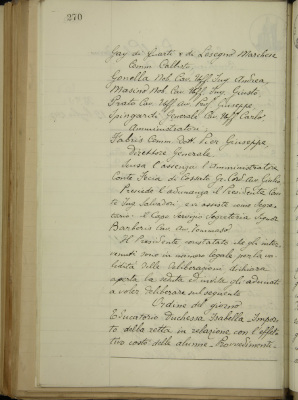 270
Gay di Quarti e di Lesegno Marchese
Comm. Calisto,
Gonella Nob. Cav. Uff. Ing. Andrea,
Masino Nob. Cav. Uff. Ing. Giusto,
Prato Cav. Uff. Giuseppe,
Spingardi Generale Cav. Uff. Carlo
Amministratori.
Fabris Comm. Dott. Pier Giuseppe,
Direttore Generale.
l'assenza l'Amministratore
Conte Feria di Cossato Gr. Cord.
Presiede l'adunanza il Presidente Con-
te Ing. Salvadori, ed assiste come Segre-
tario il Capo Servizio Segreteria Signor
Barberis Cav. Av. Tommaso
Il Presidente constatato che gli inter-
venuti sono in numero legale per la va-
lidità delle deliberazioni dichiara
aperta la seduta ed invita gli adunati
a voler deliberare sul seguente
Ordine del giorno
Educatorio Duchessa Isabella - Impor-
to della retta in relazione con l'effet-
tivo costo delle alunne - Provvedimenti -